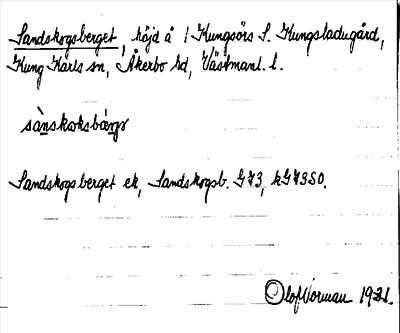 Sandskogsberget, höjd å 1 Kungsörs S. Kungsladugård,
Kung Karls sn, Åkerbo hd, Västmanl. l.
sànskoksbæ̀rjə
Sandskogsberget ek, Sandskogsb. G43, hG43SO.
Olof Norman 1931.